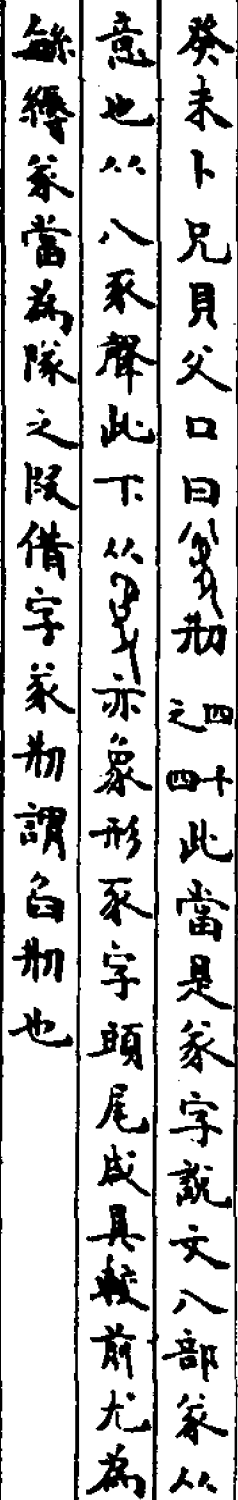 癸未卜兄貝父口曰刱四十之四此當是㒸字說文八部㒸从
意也从八豕聲此下从亦象形豕字頭尾咸具較前尤為
緐縟㒸當為隊之叚借字㒸刱謂臽刱也